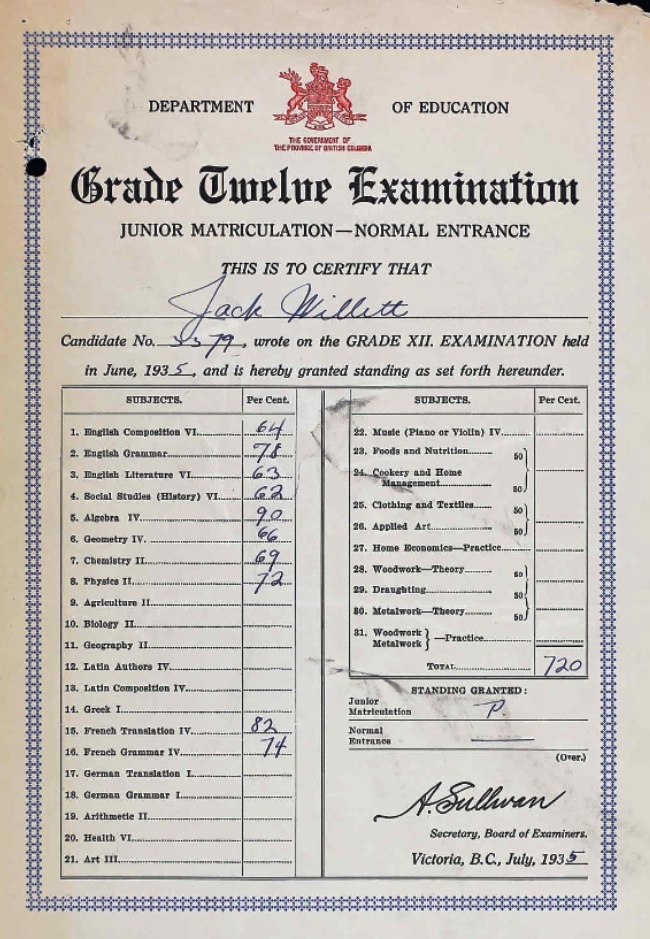 DEPARTMENT OF EDUCATION
THE GOVERNMENT OF
THE PROVINCE OF BRITISH COLUMBIA
Grade Twelve Examination
JUNIOR MATRICULATION—NORMAL ENTRANCE
THIS IS TO CERTIFY THAT
Jack Willett
Candidate No. 3379, wrote on the GRADE XII. EXAMINATION held
in June, 1935, and is hereby granted standing as set forth hereunder.
SUBJECTS. Per Cent.
1. English Composition VI. 64
2. English Grammar 78
3. English Literature VI. 63
4. Social Studies (History) VI. 62
5. Algebra IV. 90
6. Geometry IV. 66
7. Chemistry II. 69
8. Physics II. 72
9. Agriculture II.
10. Biology II.
11. Geography II.
12. Latin Authors IV.
13. Latin Composition IV.
14. Greek I.
15. French Translation IV. 82
16. French Grammar IV. 74
17. German Translation I.
18. German Grammar I.
19. Arithmetic II.
20. Health VI.
21. Art III.
SUBJECTS. Per Cent.
22. Music (Piano or Violin) IV.
23. Foods and Nutrition 50
24. Cookery and Home
Management 50
25. Clothing and Textiles 50
26. Applied Art 50
27. Home Economics—Practice
28. Woodwork—Theory 50
29. Draughting 50
30. Metalwork—Theory 50
31. Woodwork
Metalwork } —Practice
TOTAL 720
STANDING GRANTED:
Junior
Matriculation P.
Normal
Entrance
(Over.)
A. Sullivan
Secretary, Board of Examiners.
Victoria, B.C., July, 1935